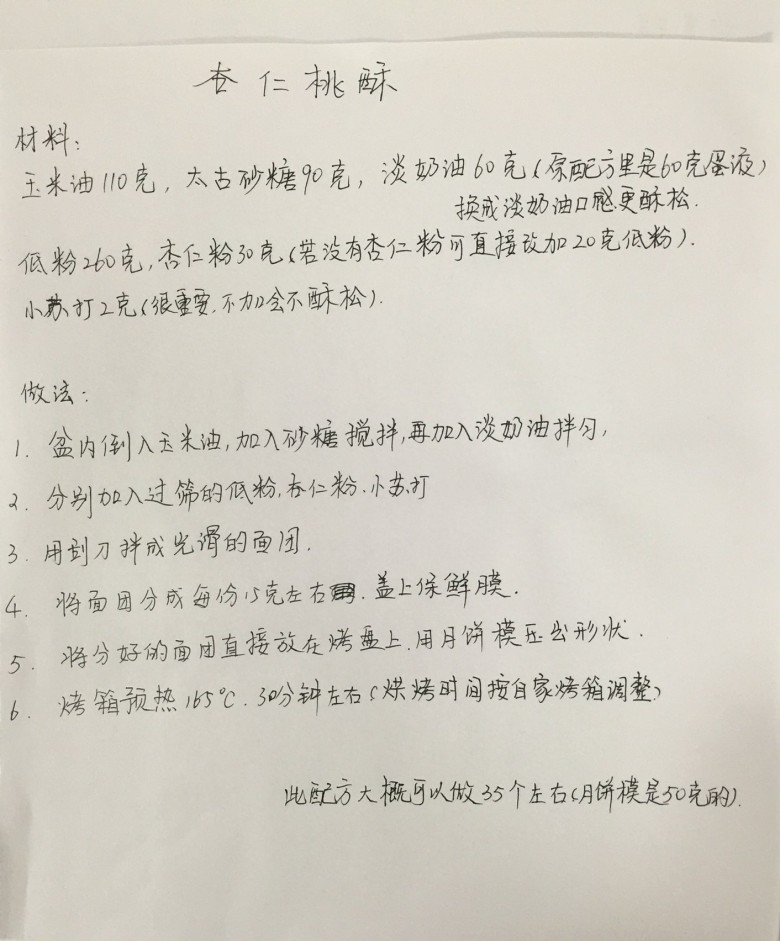 杏仁桃酥
材料:
玉米油110克，太古砂糖90克，淡奶油60克(原配方里是60克蛋液)
换成淡奶油口感更酥松.
低粉260克,杏仁粉30克(若没有杏仁粉可直接改加20克低粉).
小苏打2克(很重要.不加会不酥松).
做法:
1. 盆内倒入玉米油,加入砂糖搅拌,再加入淡奶油拌匀,
2. 分别加入过筛的低粉.杏仁粉.小苏打
3. 用刮刀拌成光滑的面团.
4. 将面团分成每份15克左右.盖上保鲜膜.
5. 将分好的面团直接放在烤盘上.用月饼模压出形状.
6. 烤箱预热165℃.30分钟左右(烘烤时间按自家烤箱调整)
此配方大概可以做35个左右(月饼模是50克的).